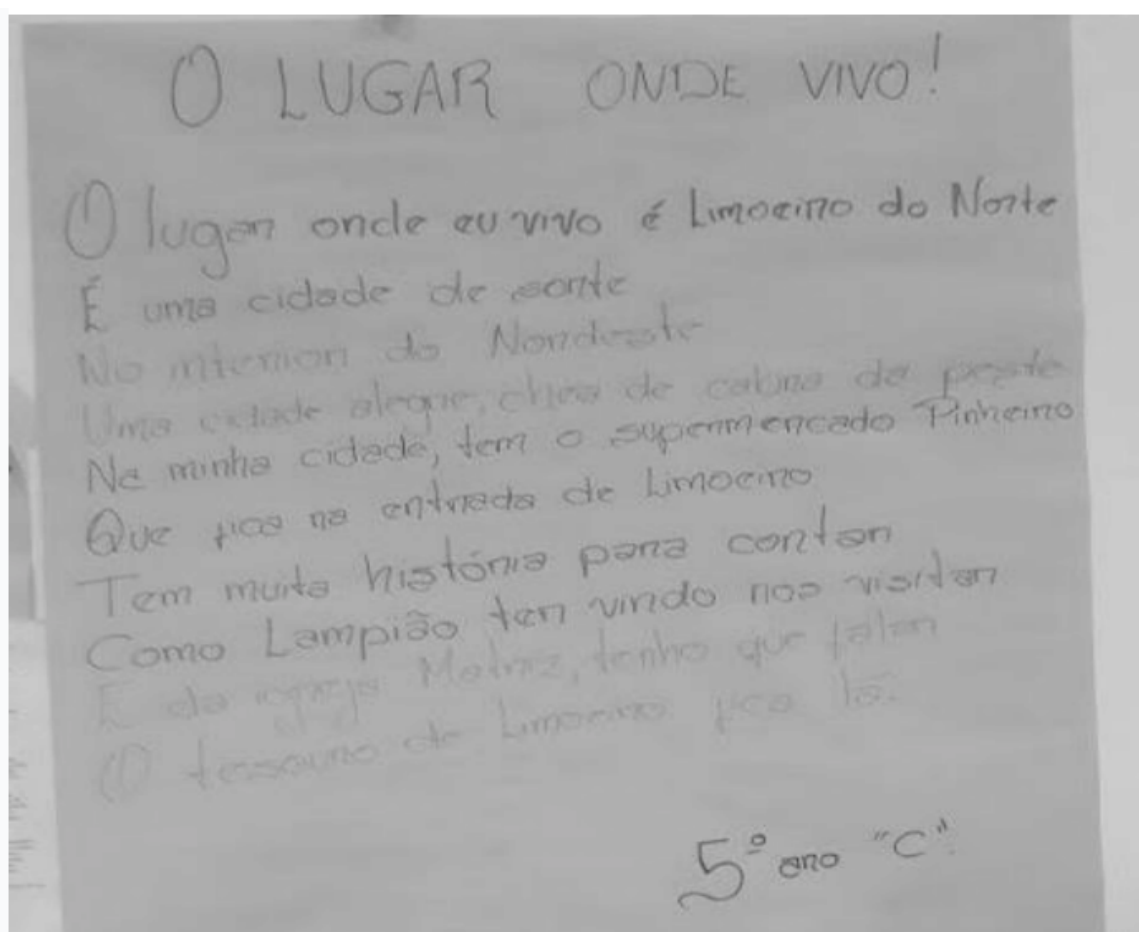 O LUGAR ONDE VIVO!
O lugar onde eu vivo é Limoeiro do Norte
É uma cidade de sorte
No interior do Nordeste
Uma cidade alegre, cheia de cabra da peste
Na minha cidade, tem o supermercado Pinheiro
Que fica na entrada de Limoeiro
Tem muita história para contar
Como Lampião ter vindo nos visitar
E da igreja Matriz, tenho que falar
O tesouro de Limoeiro fica lá.
5º ano "C".